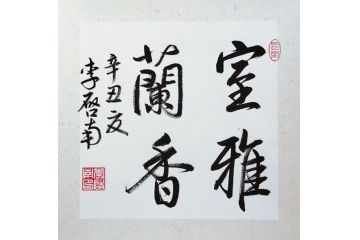 室雅
蘭香
辛丑夏
李啓南